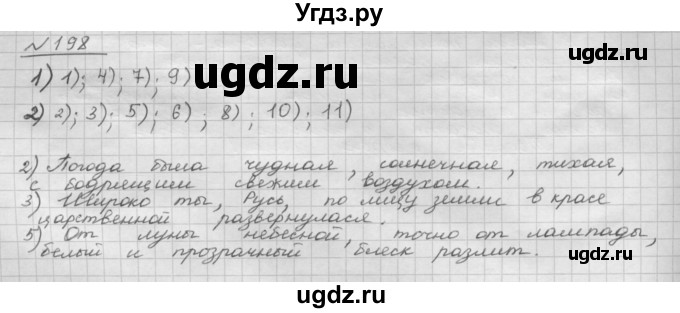 Угдз.ру
№198
1) 1); 4); 7); 9)
2) 2); 3); 5); 6); 8); 10); 11)
2) Погода была чудная, солнечная, тихая,
с бодрящим свежим воздухом.
3) Широко ты, Русь, по лицу земли в красе
царственной развернулася.
5) От луны небесной, точно от лампады,
белый и прозрачный блеск разлит.
ugdz.ru
ugdz.ru
ugdz.ru
ugdz.ru
ugdz.ru
ugdz.ru
ugdz.ru
ugdz.ru